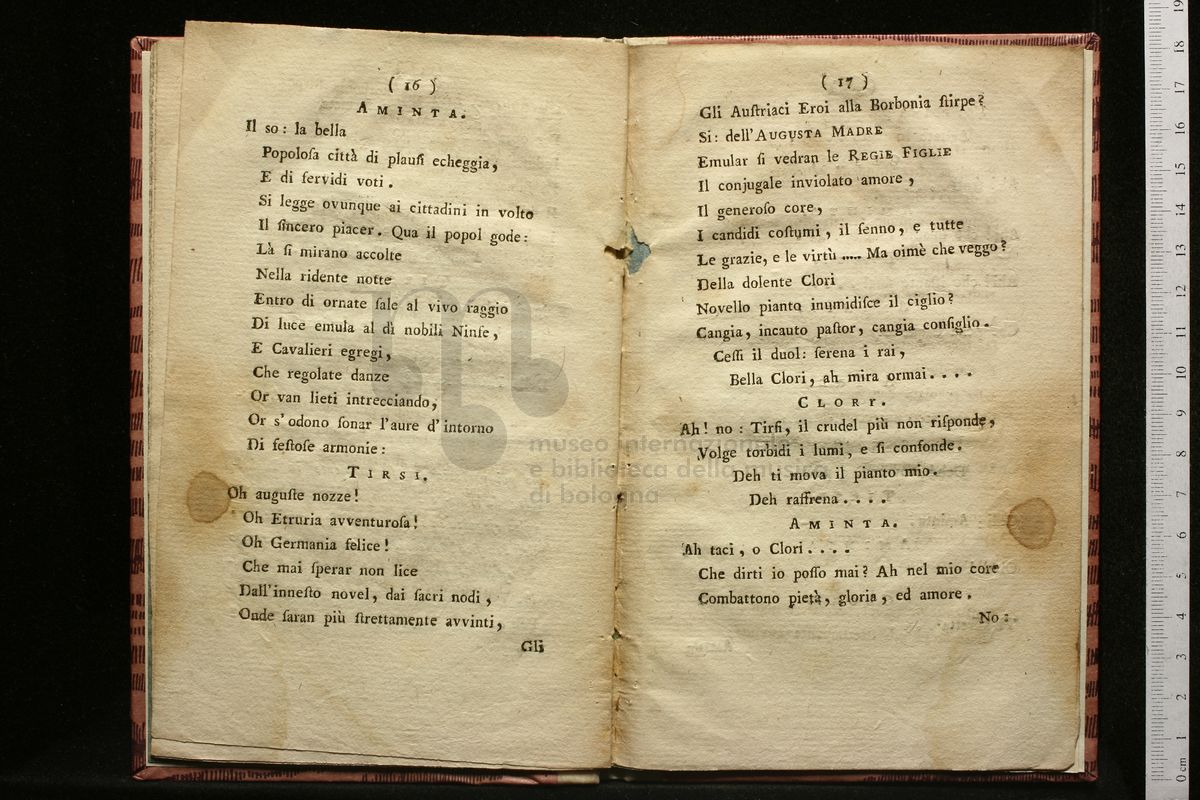 ( 16 )
AMINTA.
Il so: la bella
Popoloſa città di plauſi echeggia,
E di fervidi voti.
Si legge ovunque ai cittadini in volto
Il ſincero piacer. Qua il popol gode:
Là ſi mirano accolte
Nella ridente notte
Entro di ornate ſale al vivo raggio
Di luce emula al dì nobili Ninfe,
E Cavalieri egregi,
Che regolate danze
Or van lieti intrecciando,
Or s'odono ſonar l'aure d'intorno
Di feſtoſe armonie:
TIRSI.
Oh auguſte nozze!
Oh Etruria avventuroſa!
Oh Germania felice!
Che mai ſperar non lice
Dall'inneſto novel, dai ſacri nodi,
Onde ſaran più ſtrettamente avvinti,
Gli
( 17 )
Gli Auſtriaci Eroi alla Borbonia ſtirpe?
Si: dell'AUGUSTA MADRE
Emular ſi vedran le REGIE FIGLIE
Il conjugale inviolato amore,
Il generoſo core,
I candidi coſtumi, il ſenno, e tutte
Le grazie, e le virtù ..... Ma oimè che veggo?
Della dolente Clori
Novello pianto inumidiſce il ciglio?
Cangia, incauto paſtor, cangia conſiglio.
Ceſſi il duol: ſerena i rai,
Bella Clori, ah mira ormai....
CLORI.
Ah! no: Tirſi, il crudel più non riſponde,
Volge torbidi i lumi, e ſi confonde.
Deh ti mova il pianto mio.
Deh raffrena....
AMINTA.
Ah taci, o Clori....
Che dirti io poſſo mai? Ah nel mio core
Combattono pietà, gloria, ed amore.
No:
museo internazionale
e biblioteca della musica
di bologna
0 cm 1 2 3 4 5 6 7 8 9 10 11 12 13 14 15 16 17 18 19